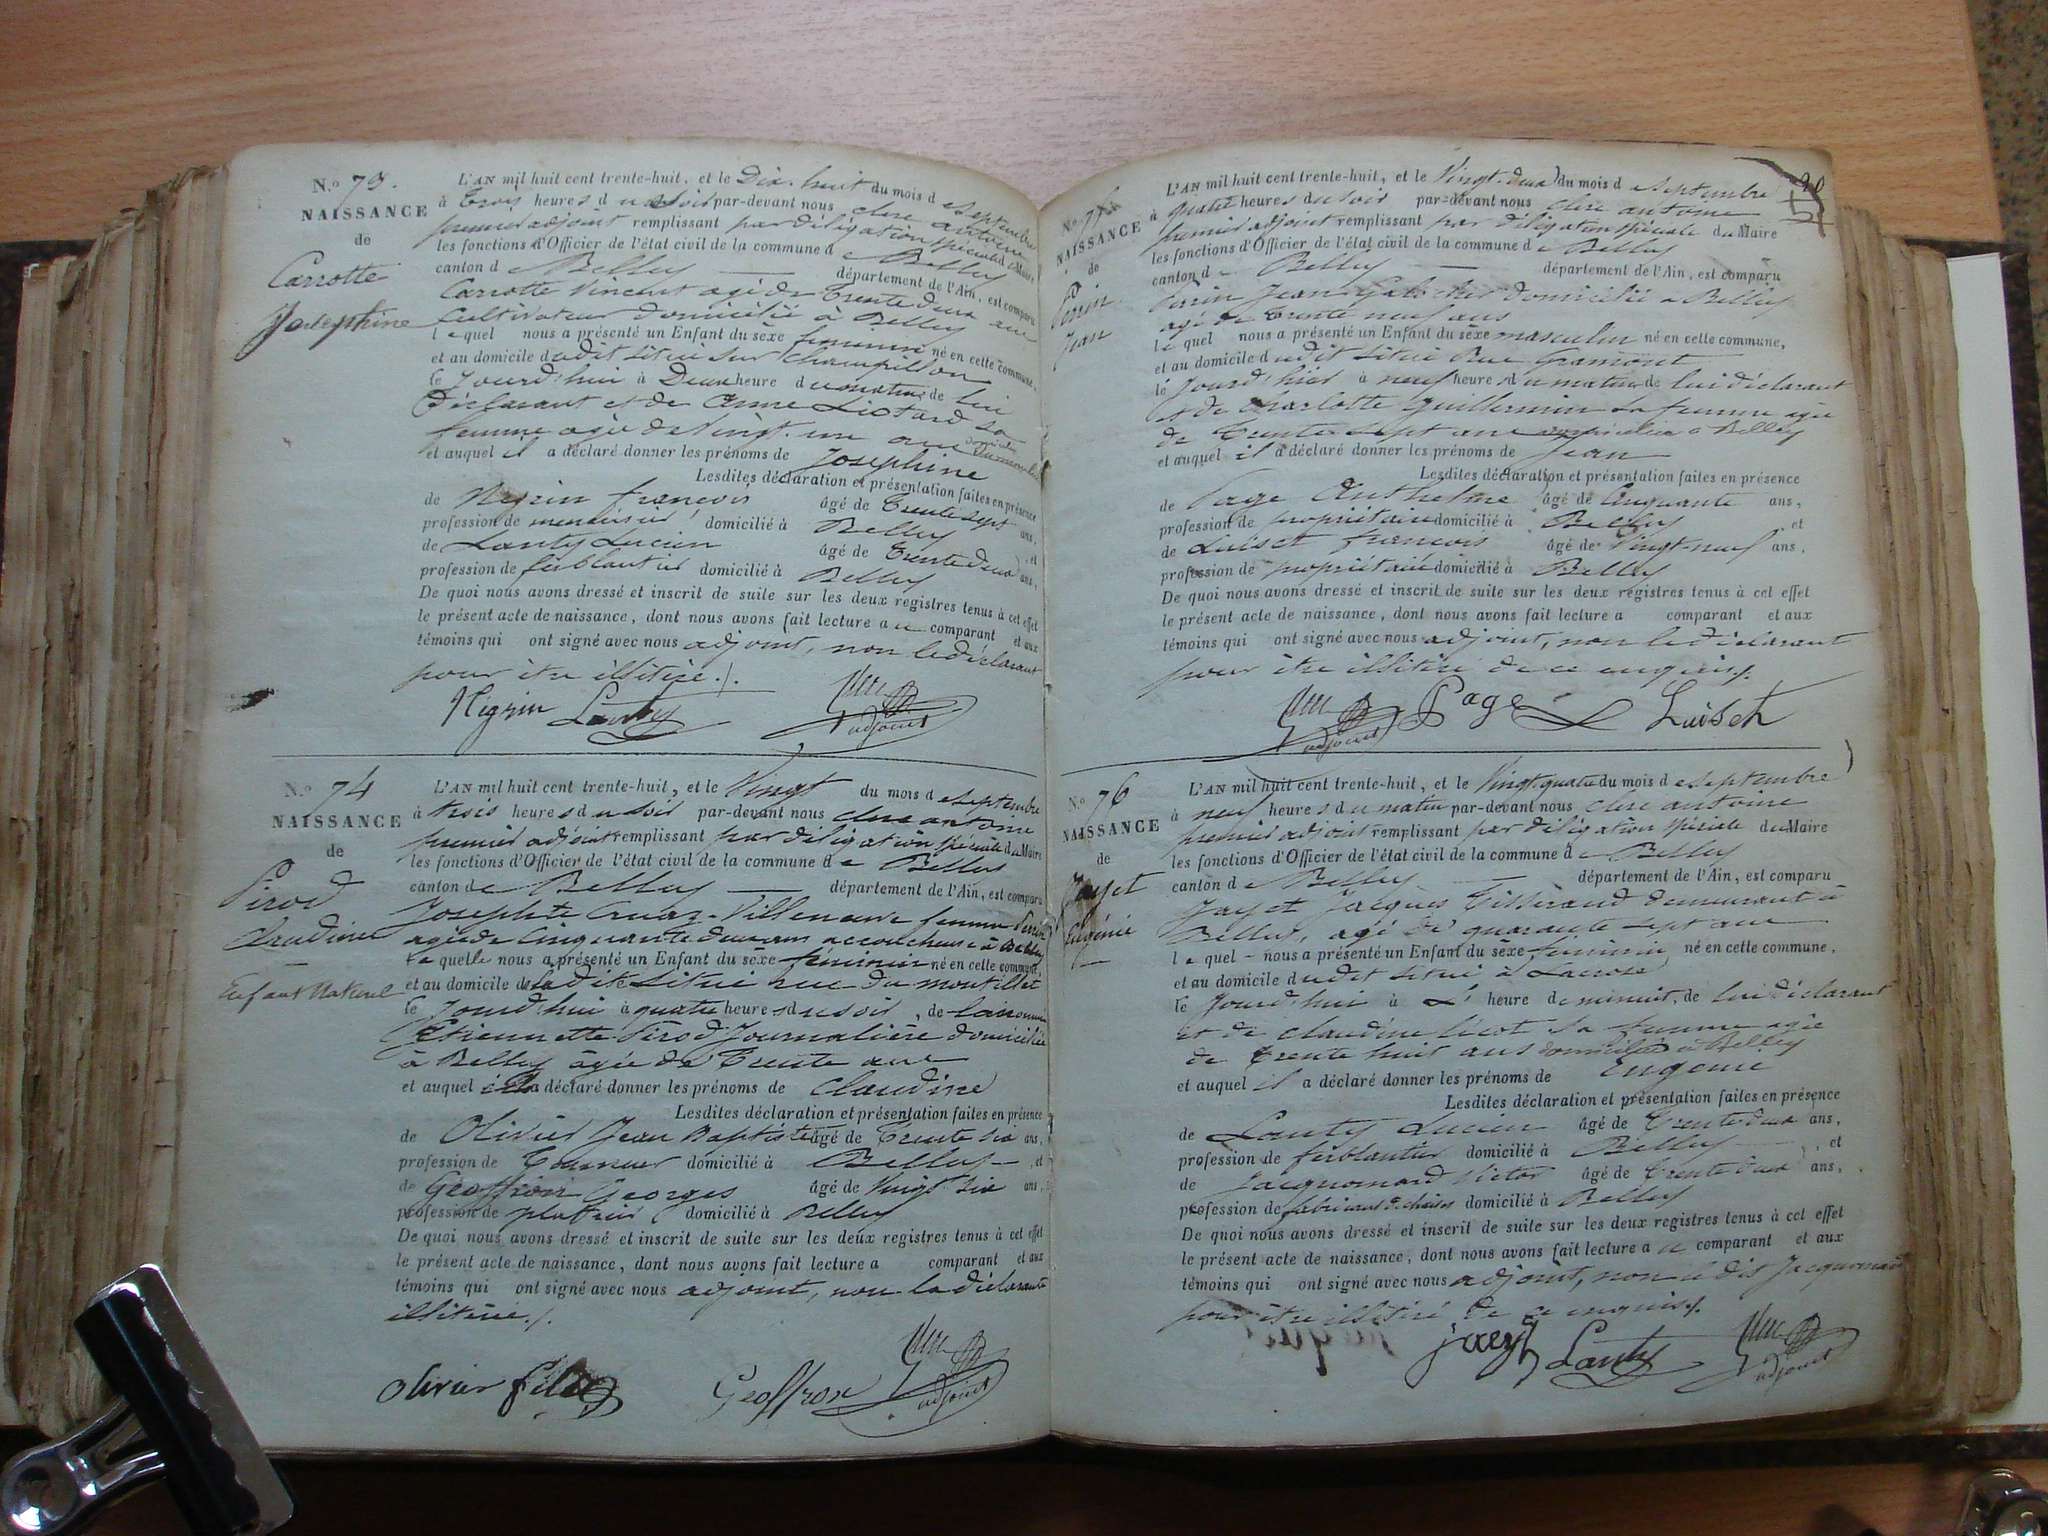 N.o 73.
NAISSANCE
de
Carrotte
Josephine
L'AN mil huit cent trente-huit, et le Dix-huit du mois de Septembre
à Trois heures du soir par-devant nous clerc antoine
premier adjoint remplissant par déligation spéciale du Maire
les fonctions d'Officier de l'état civil de la commune de Belley
canton de Belley département de l'Ain, est comparu
Carrotte Vincent agé de Trente deux ans
Cultivateur domicilié à Belley
lequel nous a présenté un Enfant du sèxe feminin né en cette commune,
et au domicile dudit situé sur Champillon
le Jourd'hui à Deux heure du matin de lui
Déclarant et de Anne Liotard sa
femme agée de Vingt-un ans
et auquel il a déclaré donner les prénoms de Josephine
Lesdites déclaration et présentation faites en présence
de Negrin francois âgé de Trente sept ans,
profession de menuisier domicilié à Belley et
de Lanty Lucien âgé de Trente deux ans,
profession de ferblantier domicilié à Belley
De quoi nous avons dressé et inscrit de suite sur les deux registres tenus à cet effet
le présent acte de naissance, dont nous avons fait lecture au comparant et aux
témoins qui ont signé avec nous adjoint, non le déclarant
pour être illitéré./.
Negrin Lanty adjoint
N.o 74
NAISSANCE
de
Pirod
Claudine
Enfant Naturel
L'AN mil huit cent trente-huit, et le Vingt du mois de Septembre
à trois heures du soir par-devant nous clerc antoine
premier adjoint remplissant par déligation spéciale du Maire
les fonctions d'Officier de l'état civil de la commune de Belley
canton de Belley département de l'Ain, est comparu
Josephte Cruaz-Villeneuve femme Perrin
agée de Cinquante deux ans accoucheuse à Belley
laquelle nous a présenté un Enfant du sèxe feminin né en cette commune,
et au domicile de ladite situé rue du montillet
le Jourd'hui à quatre heures du soir, de la nommée
Etiennette Pirod Journalière domiciliée
à Belley âgée de Trente ans
et auquel elle a déclaré donner les prénoms de Claudine
Lesdites déclaration et présentation faites en présence
de Olivier Jean Baptiste âgé de Trente six ans,
profession de Tourneur domicilié à Belley et
de Geoffroi Georges âgé de Vingt six ans,
profession de platrier domicilié à Belley
De quoi nous avons dressé et inscrit de suite sur les deux registres tenus à cet effet
le présent acte de naissance, dont nous avons fait lecture a comparant et aux
témoins qui ont signé avec nous adjoint, non la déclarante
illitérée./.
Olivier fils Geoffrox adjoint
N.o 75
NAISSANCE
de
Perrin
Jean
L'AN mil huit cent trente-huit, et le Vingt-deux du mois de Septembre
à quatre heures du soir par-devant nous clerc antoine
premier adjoint remplissant par déligation spéciale du Maire
les fonctions d'Officier de l'état civil de la commune de Belley
canton de Belley département de l'Ain, est comparu
Perrin Jean Galochier domicilié à Belley
agé de Trente neuf ans
lequel nous a présenté un Enfant du sèxe masculin né en cette commune,
et au domicile dudit situé Rue Gramont
le Jourd'hier à neuf heures du matin de lui déclarant
et de Charlotte Guillermin sa femme agée
de Trente sept ans à Belley
et auquel il a déclaré donner les prénoms de Jean
Lesdites déclaration et présentation faites en présence
de Page Anthelme âgé de Cinquante ans,
profession de propriétaire domicilié à Belley et
de Luiset francois âgé de Vingt-neuf ans,
profession de propriétaire domicilié à Belley
De quoi nous avons dressé et inscrit de suite sur les deux registres tenus à cet effet
le présent acte de naissance, dont nous avons fait lecture a comparant et aux
témoins qui ont signé avec nous adjoint, non le déclarant
pour être illitéré de ce enquis./.
adjoint Page Luiset
N.o 76
NAISSANCE
de
Jayet
Eugénie
L'AN mil huit cent trente-huit, et le Vingt quatre du mois de Septembre
à neuf heures du matin par-devant nous clerc antoine
premier adjoint remplissant par déligation spéciale du Maire
les fonctions d'Officier de l'état civil de la commune de Belley
canton de Belley département de l'Ain, est comparu
Jayet Jacques Tisserand demeurant à
Belley, agé de quarante sept ans
lequel nous a présenté un Enfant du sèxe feminin né en cette commune,
et au domicile dudit situé à
le Jourd'hui à L' heure de minuit, de lui déclarant
et de Claudine sa femme agée
de Trente huit ans domiciliée à Belley
et auquel il a déclaré donner les prénoms de Eugenie
Lesdites déclaration et présentation faites en présence
de Lanty Lucien âgé de Trente deux ans,
profession de ferblantier domicilié à Belley et
de Jacquemard Victor âgé de Trente deux ans,
profession de fabricant de chaises domicilié à Belley
De quoi nous avons dressé et inscrit de suite sur les deux registres tenus à cet effet
le présent acte de naissance, dont nous avons fait lecture au comparant et aux
témoins qui ont signé avec nous adjoint, non le dit Jacquemard
pour être illitéré de ce enquis./.
jayet Lanty adjoint